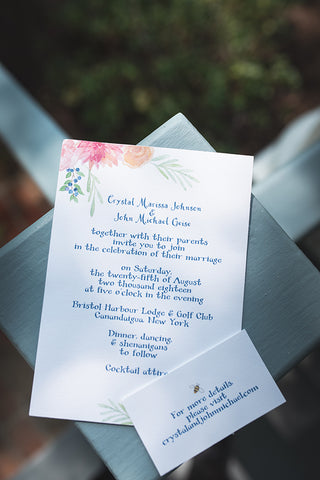 Crystal Marissa Johnson
&
John Michael Geise
together with their parents
invite you to join
in the celebration of their marriage
on Saturday,
the twenty-fifth of August
two thousand eighteen
at five o'clock in the evening
Bristol Harbour Lodge & Golf Club
Canandaigua, New York
Dinner, dancing,
& shenanigans
to follow
Cocktail attire
For more details,
Please visit
crystalandjohnmichael.com